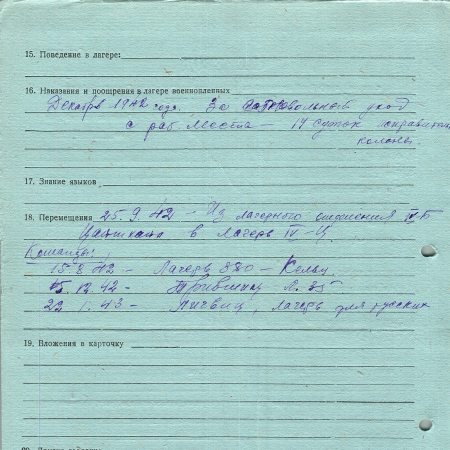 15. Поведение в лагере:
16. Наказания и поощрения в лагере военнопленных
Декабрь 1942 года. За самовольный уход
с раб. места - 14 суток исправит.
колоны.
17. Знание языков
18. Перемещения 25.9.42 - Из лагерного отделения IV Б
в лагерь IV-Ц.
Команды:
15.8.42 - Лагерь 880 -
15.12.42 -
22.1.43 - лагерь для русских
19. Вложения в карточку